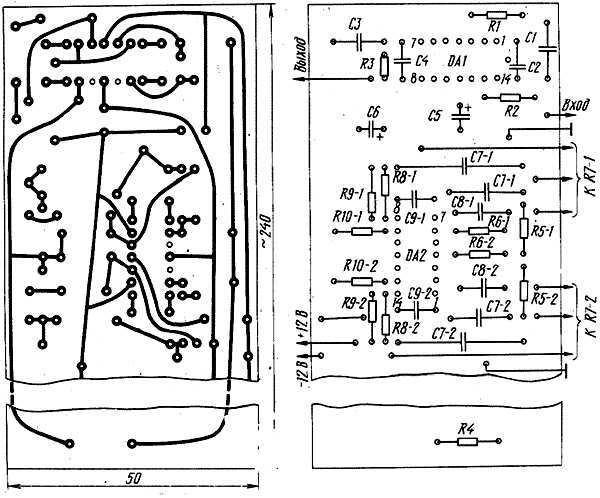 C3
R1
C1
7
1
Выход
R3
C4
DA1
C2
8
14
R2
C6
+
C5
+
Вход
C7-1
R8-1
R9-1
C7-1
К R7-1
8
C9-1
7
C8-1
R10-1
R6-1
R5-1
DA2
R6-2
R10-2
C8-2
R9-2
14
C9-2
1
R5-2
R8-2
C7-2
К R7-2
+12 В
C7-2
-12 В
R4
~240
50